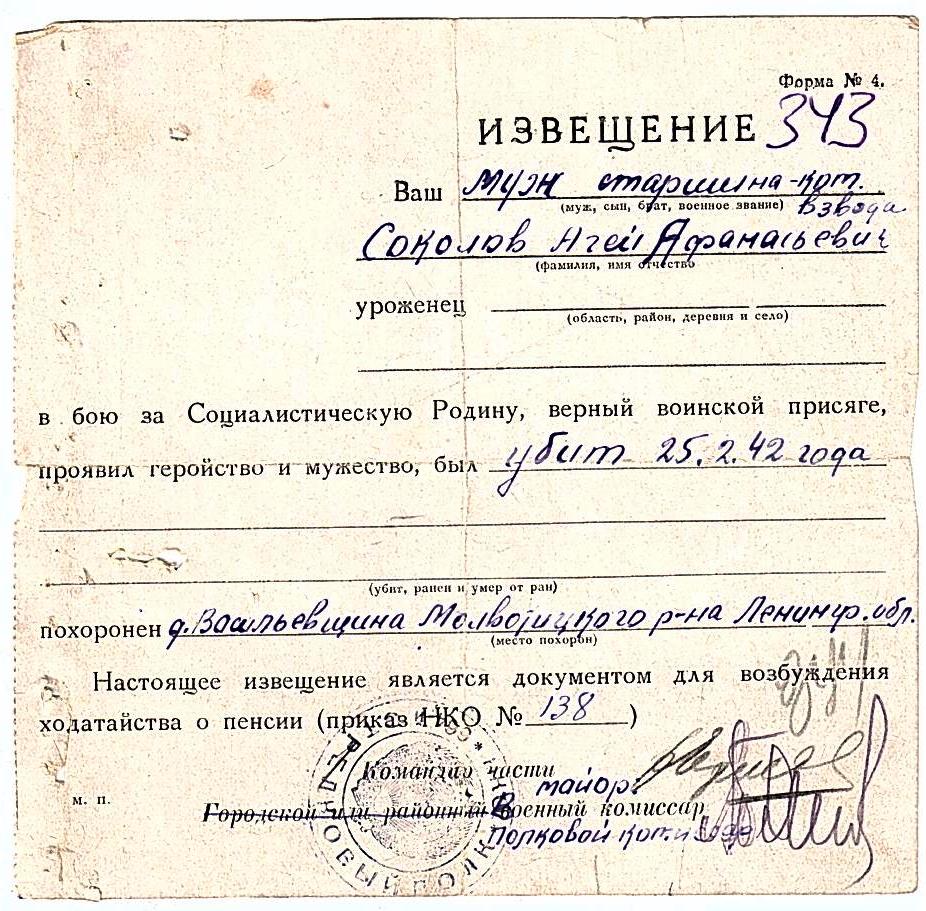 Форма № 4.
ИЗВЕЩЕНИЕ 343
Ваш муж старшина-ком.
(муж, сын, брат, военное звание) взвода
Соколов Агей Афанасьевич
(фамилия, имя отчество
уроженец
(область, район, деревня и село)
в бою за Социалистическую Родину, верный воинской присяге,
проявил геройство и мужество, был убит 25.2.42 года
(убит, ранен и умер от ран)
похоронен д.Васильевщина Молвотицкого р-на Ленингр. обл.
(место похорон)
Настоящее извещение является документом для возбуждения
ходатайства о пенсии (приказ НКО № 138 )
Командир части
майор:
м. п.
Городской или районный военный комиссар
Полковой комиссар